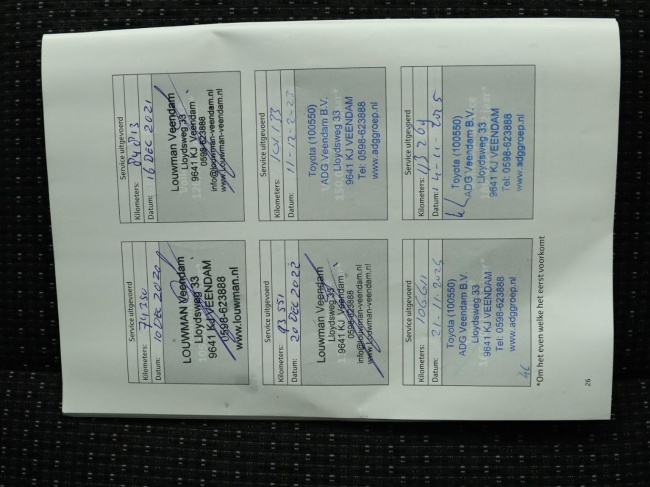 Service uitgevoerd
Kilometers:
Datum: 10 DEC 2020
LOUWMAN Veendam
Lloydsweg 33
9641 KJ VEENDAM
0598-623888
www.louwman.nl
Service uitgevoerd
Kilometers:
Datum: 16 DEC 2021
Louwman Veendam
Lloydsweg 33
9641 KJ Veendam
0598-623888
info@louwman-veendam.nl
www.Louwman-veendam.nl
Service uitgevoerd
Kilometers: 93 551
Datum: 20 DEC 2022
Louwman Veendam
Lloydsweg 33
9641 KJ Veendam
0598-623888
info@louwman-veendam.nl
www.Louwman-veendam.nl
Service uitgevoerd
Kilometers: 101 133
Datum: 11-12-2023
Toyota (100550)
ADG Veendam B.V.
Lloydsweg 33
9641 KJ VEENDAM
Tel: 0598-623888
www.adggroep.nl
Service uitgevoerd
Kilometers: 106611
Datum: 21-11-2024
Toyota (100550)
ADG Veendam B.V.
Lloydsweg 33
9641 KJ VEENDAM
Tel: 0598-623888
www.adggroep.nl
Service uitgevoerd
Kilometers: 113 269
Datum: 4-11-2025
Toyota (100550)
ADG Veendam B.V.
Lloydsweg 33
9641 KJ VEENDAM
Tel: 0598-623888
www.adggroep.nl
*Om het even welke het eerst voorkomt
26